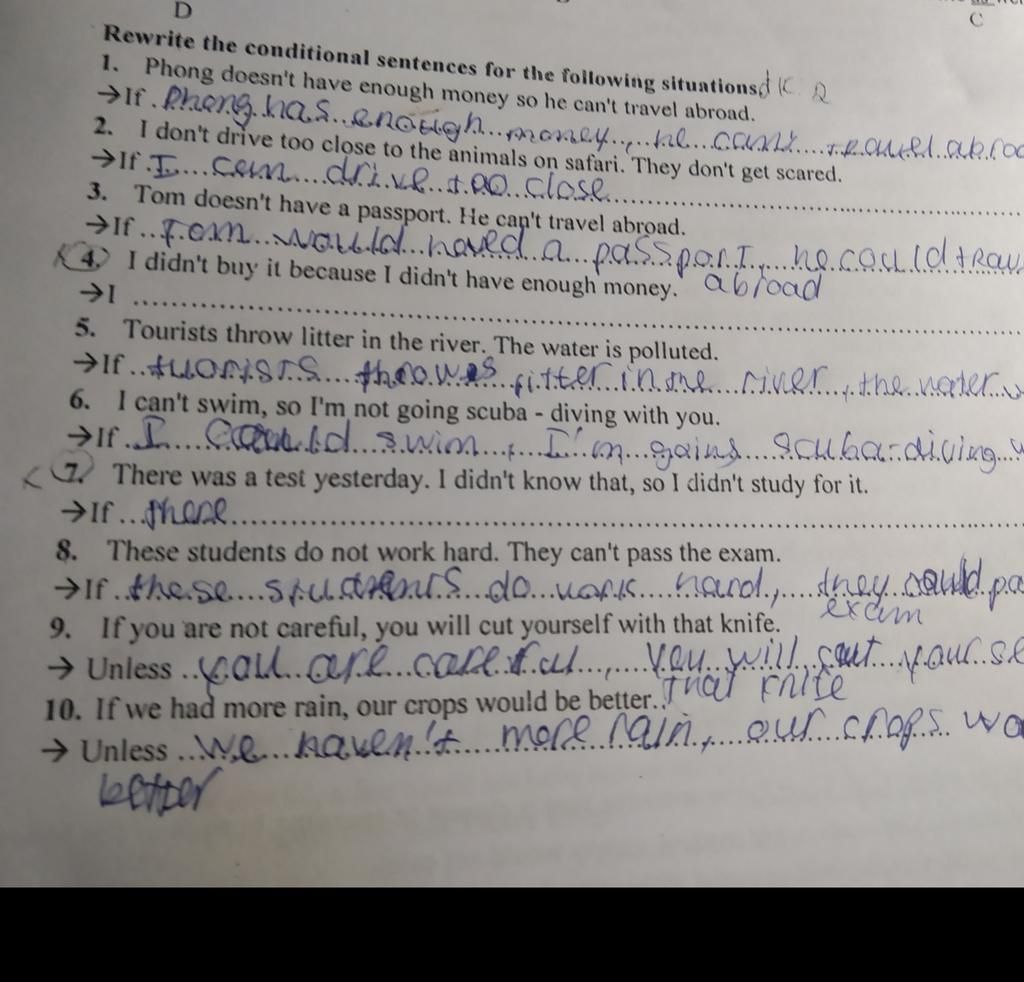 D
C
Rewrite the conditional sentences for the following situations.
1. Phong doesn't have enough money so he can't travel abroad.
→If Phong has enough money, he can travel abroa
2. I don't drive too close to the animals on safari. They don't get scared.
→If I can drive too close
3. Tom doesn't have a passport. He can't travel abroad.
→If Tom would haved a passport, he could trav
abroad
4. I didn't buy it because I didn't have enough money.
→I
5. Tourists throw litter in the river. The water is polluted.
→If in the river, the water
6. I can't swim, so I'm not going scuba - diving with you.
→If I could swim, I'm going scuba-diving
7. There was a test yesterday. I didn't know that, so I didn't study for it.
→If there
8. These students do not work hard. They can't pass the exam.
→If these students do work hard, they could pa
exam
9. If you are not careful, you will cut yourself with that knife.
→ Unless you are careful, you will cut yourse
that knife
10. If we had more rain, our crops would be better.
→ Unless we haven't more rain, our crops wo
better